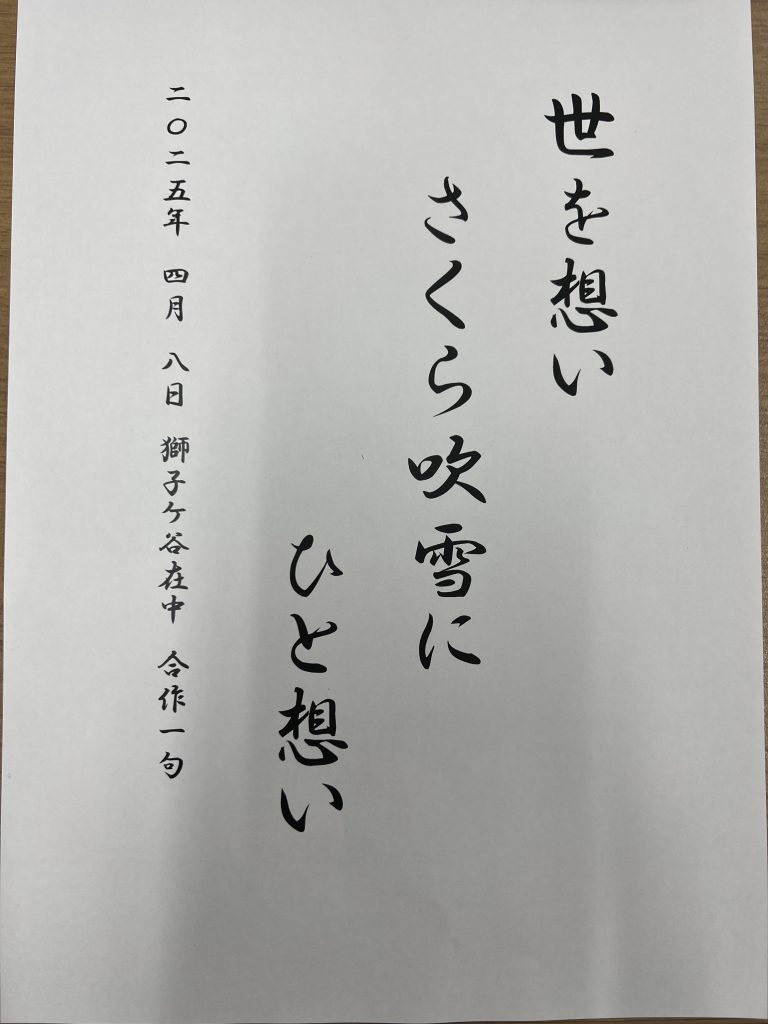 世を想い
さくら吹雪に
ひと想い
二〇二五年 四月 八日 獅子ケ谷在中 合作一句